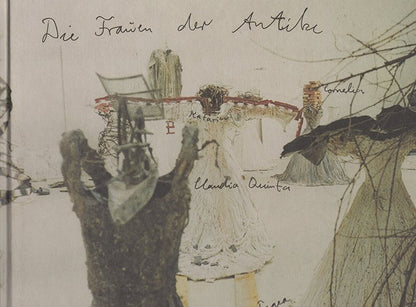 Die Frauen der Antike
Cornelia
Claudia Quinta